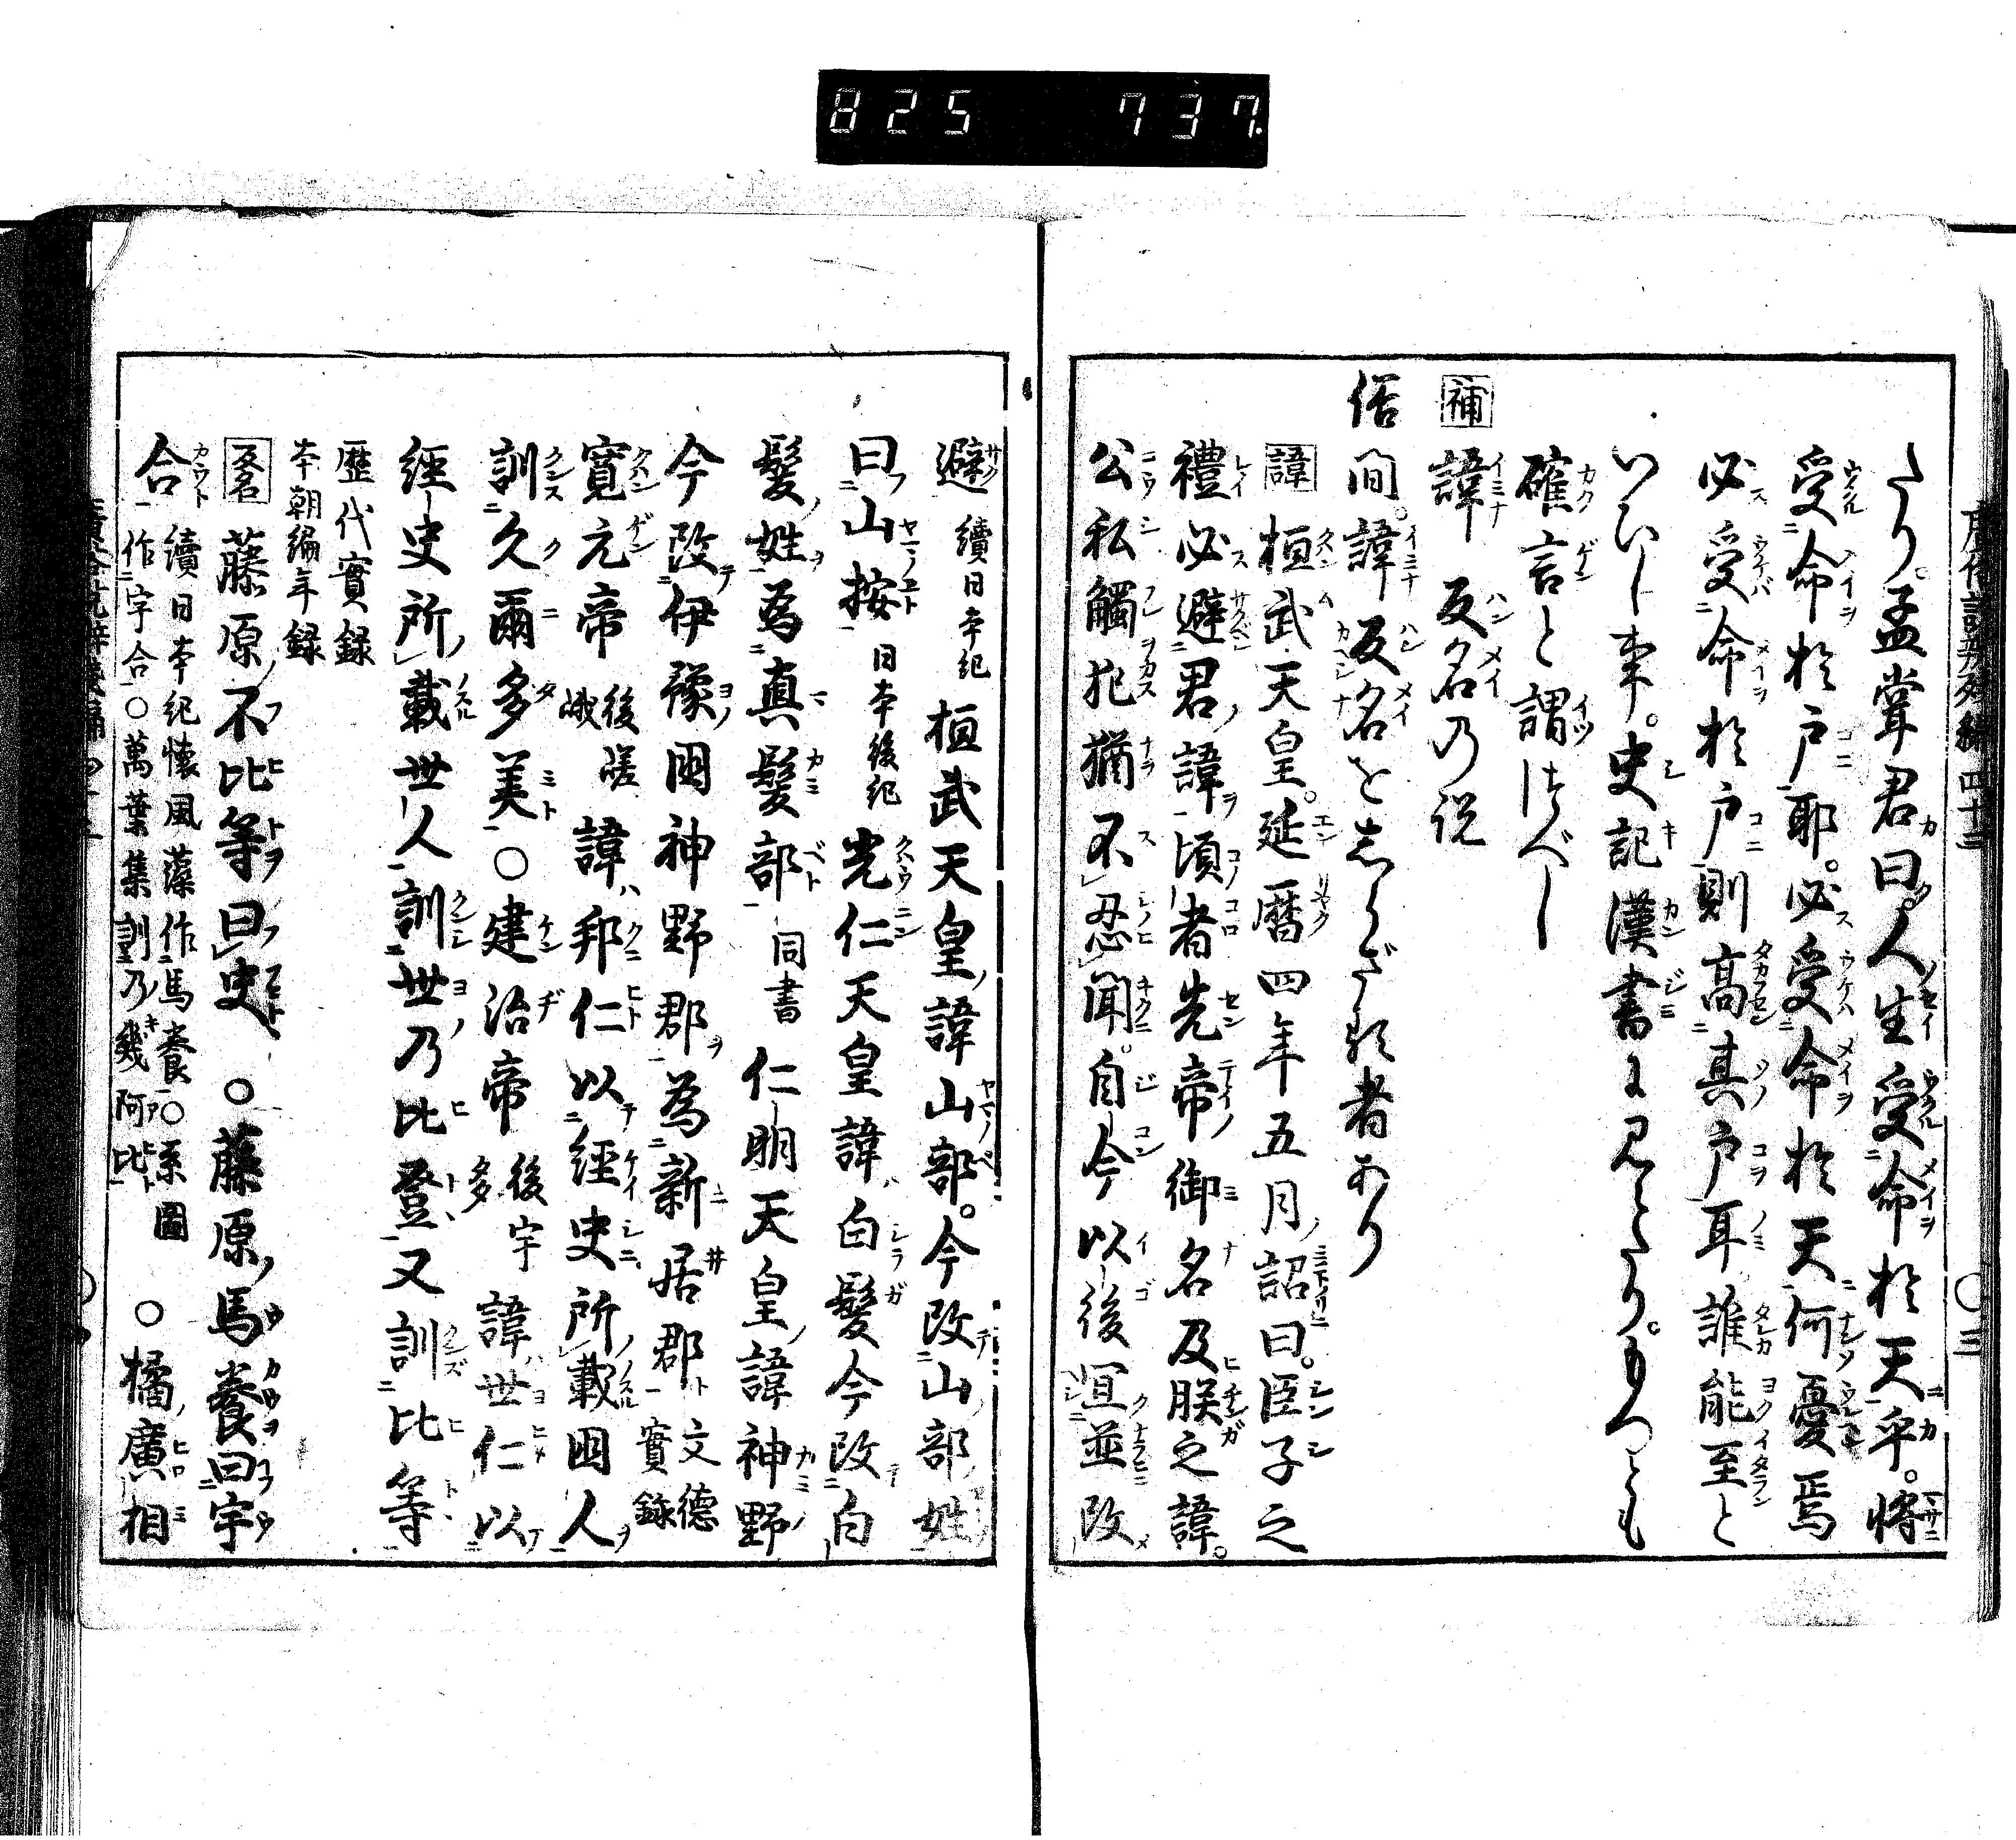 825 737.
たり。孟嘗君曰。人生受命於天乎。將
受命於戸耶。必受命於天何憂焉
必受命於戸則高其戸耳誰能至と
いひし事。史記漢書に見えたり。もつとも
確言と謂つべし
補 諱 反名乃説
俗間。諱反名をしらざる者あり
諱 桓武天皇。延暦四年五月詔曰。臣子之
禮必避君諱頃者先帝御名及朕之諱。
公私觸犯猶不忍聞。自今以後宜並改
避 續日本紀 桓武天皇諱山部。今改山部姓
曰山 按日本後紀 光仁天皇諱白髮今改白
髮姓為真髮部 同書 仁明天皇諱神野
今改伊豫國神野郡為新居郡 文德實錄
寛元帝 後嵯峨 諱邦仁以經史所載國人
訓久爾多美 〇建治帝 後宇多 諱世仁以
經史所載世人訓世乃比登又訓比等
歷代實録
本朝編年録
反名 藤原不比等曰史 〇藤原馬養曰宇
合 續日本紀懐風藻作馬養〇系圖
作宇合〇萬葉集訓乃幾阿比 〇橘廣相